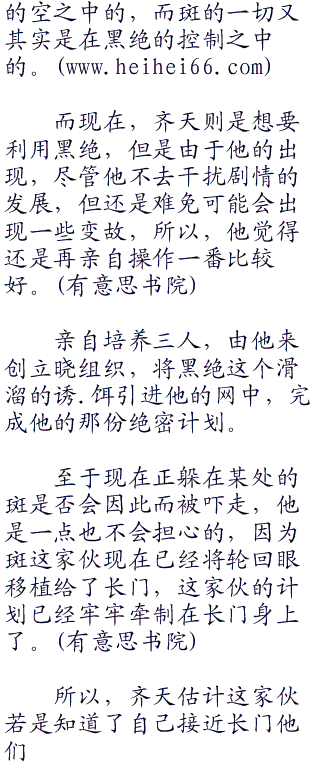 的空之中的，而斑的一切又
其实是在黑绝的控制之中
的。(www.heihei66.com)
而现在，齐天则是想要
利用黑绝，但是由于他的出
现，尽管他不去干扰剧情的
发展，但还是难免可能会出
现一些变故，所以，他觉得
还是再亲自操作一番比较
好。(有意思书院)
亲自培养三人，由他来
创立晓组织，将黑绝这个滑
溜的诱.饵引进他的网中，完
成他的那份绝密计划。
至于现在正躲在某处的
斑是否会因此而被吓走，他
是一点也不会担心的，因为
斑这家伙现在已经将轮回眼
移植给了长门，这家伙的计
划已经牢牢牵制在长门身上
了。(有意思书院)
所以，齐天估计这家伙
若是知道了自己接近长门他
们